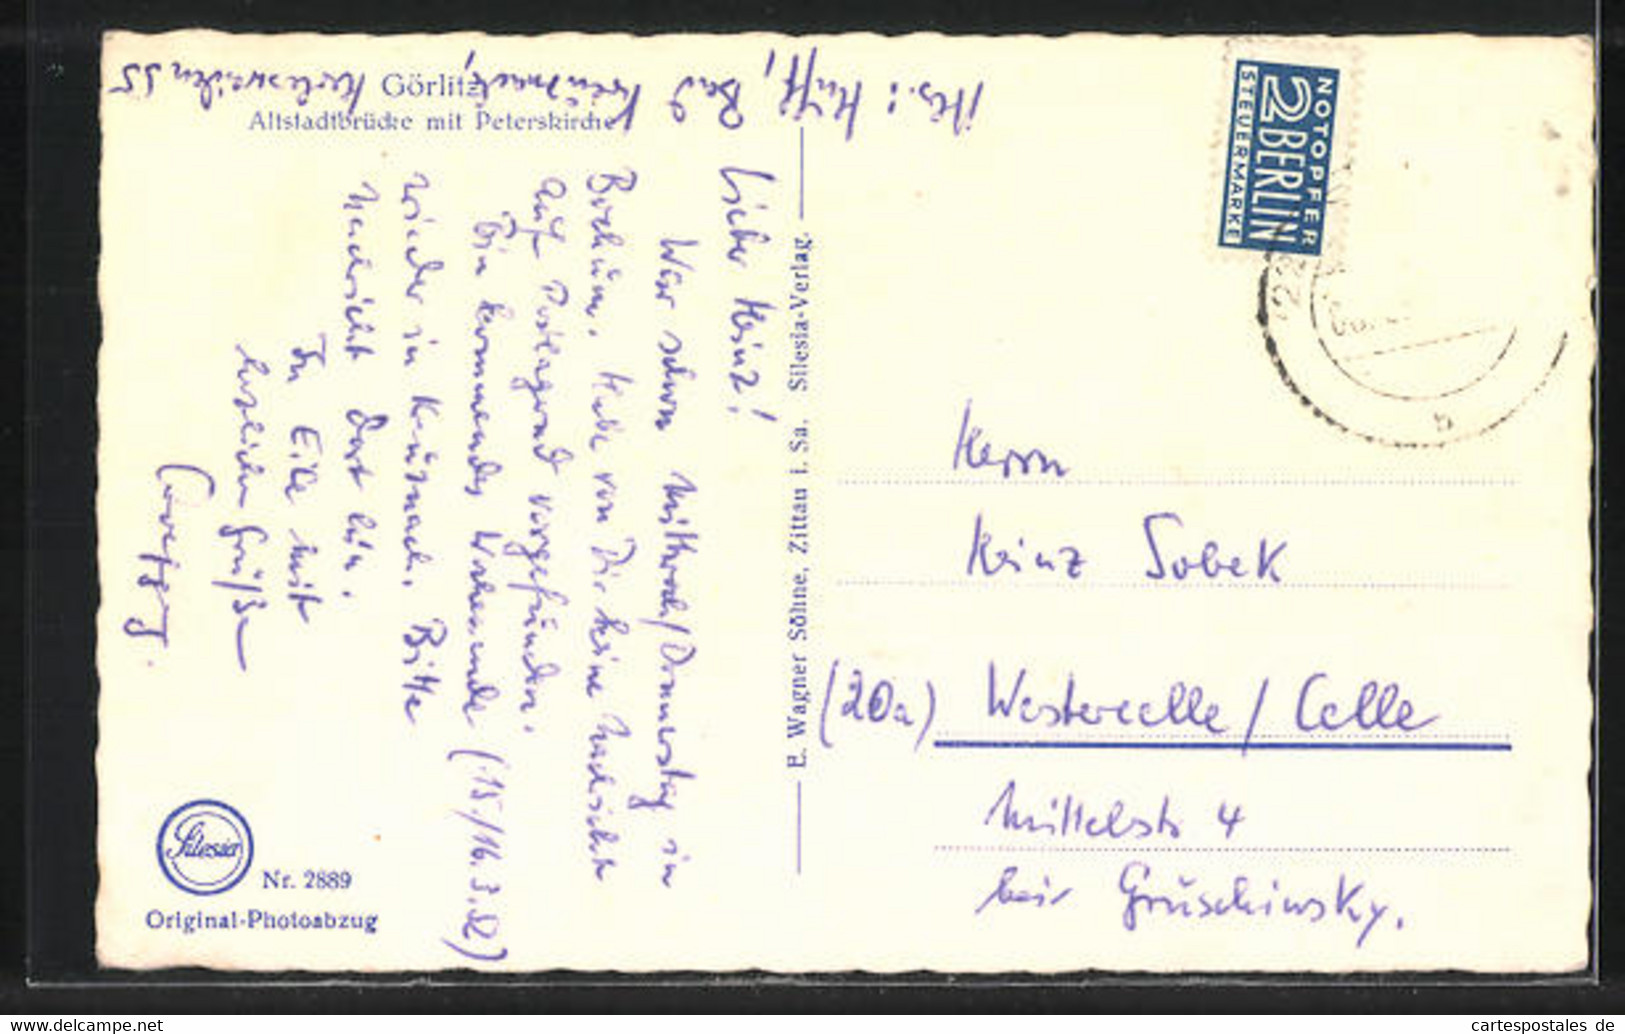 Görlitz
Altstadtbrücke mit Peterskirche
Abs.: Huff, Bad Kreuznach,
Lieber Heinz!
War schon Mittwoch/Donnerstag in
Bochum. Habe von Dir keine Nachricht
auf Postlagernd vorgefunden.
Bin kommendes Wochenende (15./16.3.52)
wieder in Kreuznach. Bitte
Nachricht dort hin.
In Eile mit
herzlichen Grüßen
E. Wagner Söhne, Zittau i. Sa. Silesia-Verlag.
NOTOPFER
2 BERLIN
STEUERMARKE
22
b
Herrn
Heinz Sobek
(20a) Westercelle / Celle
Mittelstr 4
bei Gruschinsky.
Silesia
Nr. 2889
Original-Photoabzug
www.cartespostales.de
cartespostales de